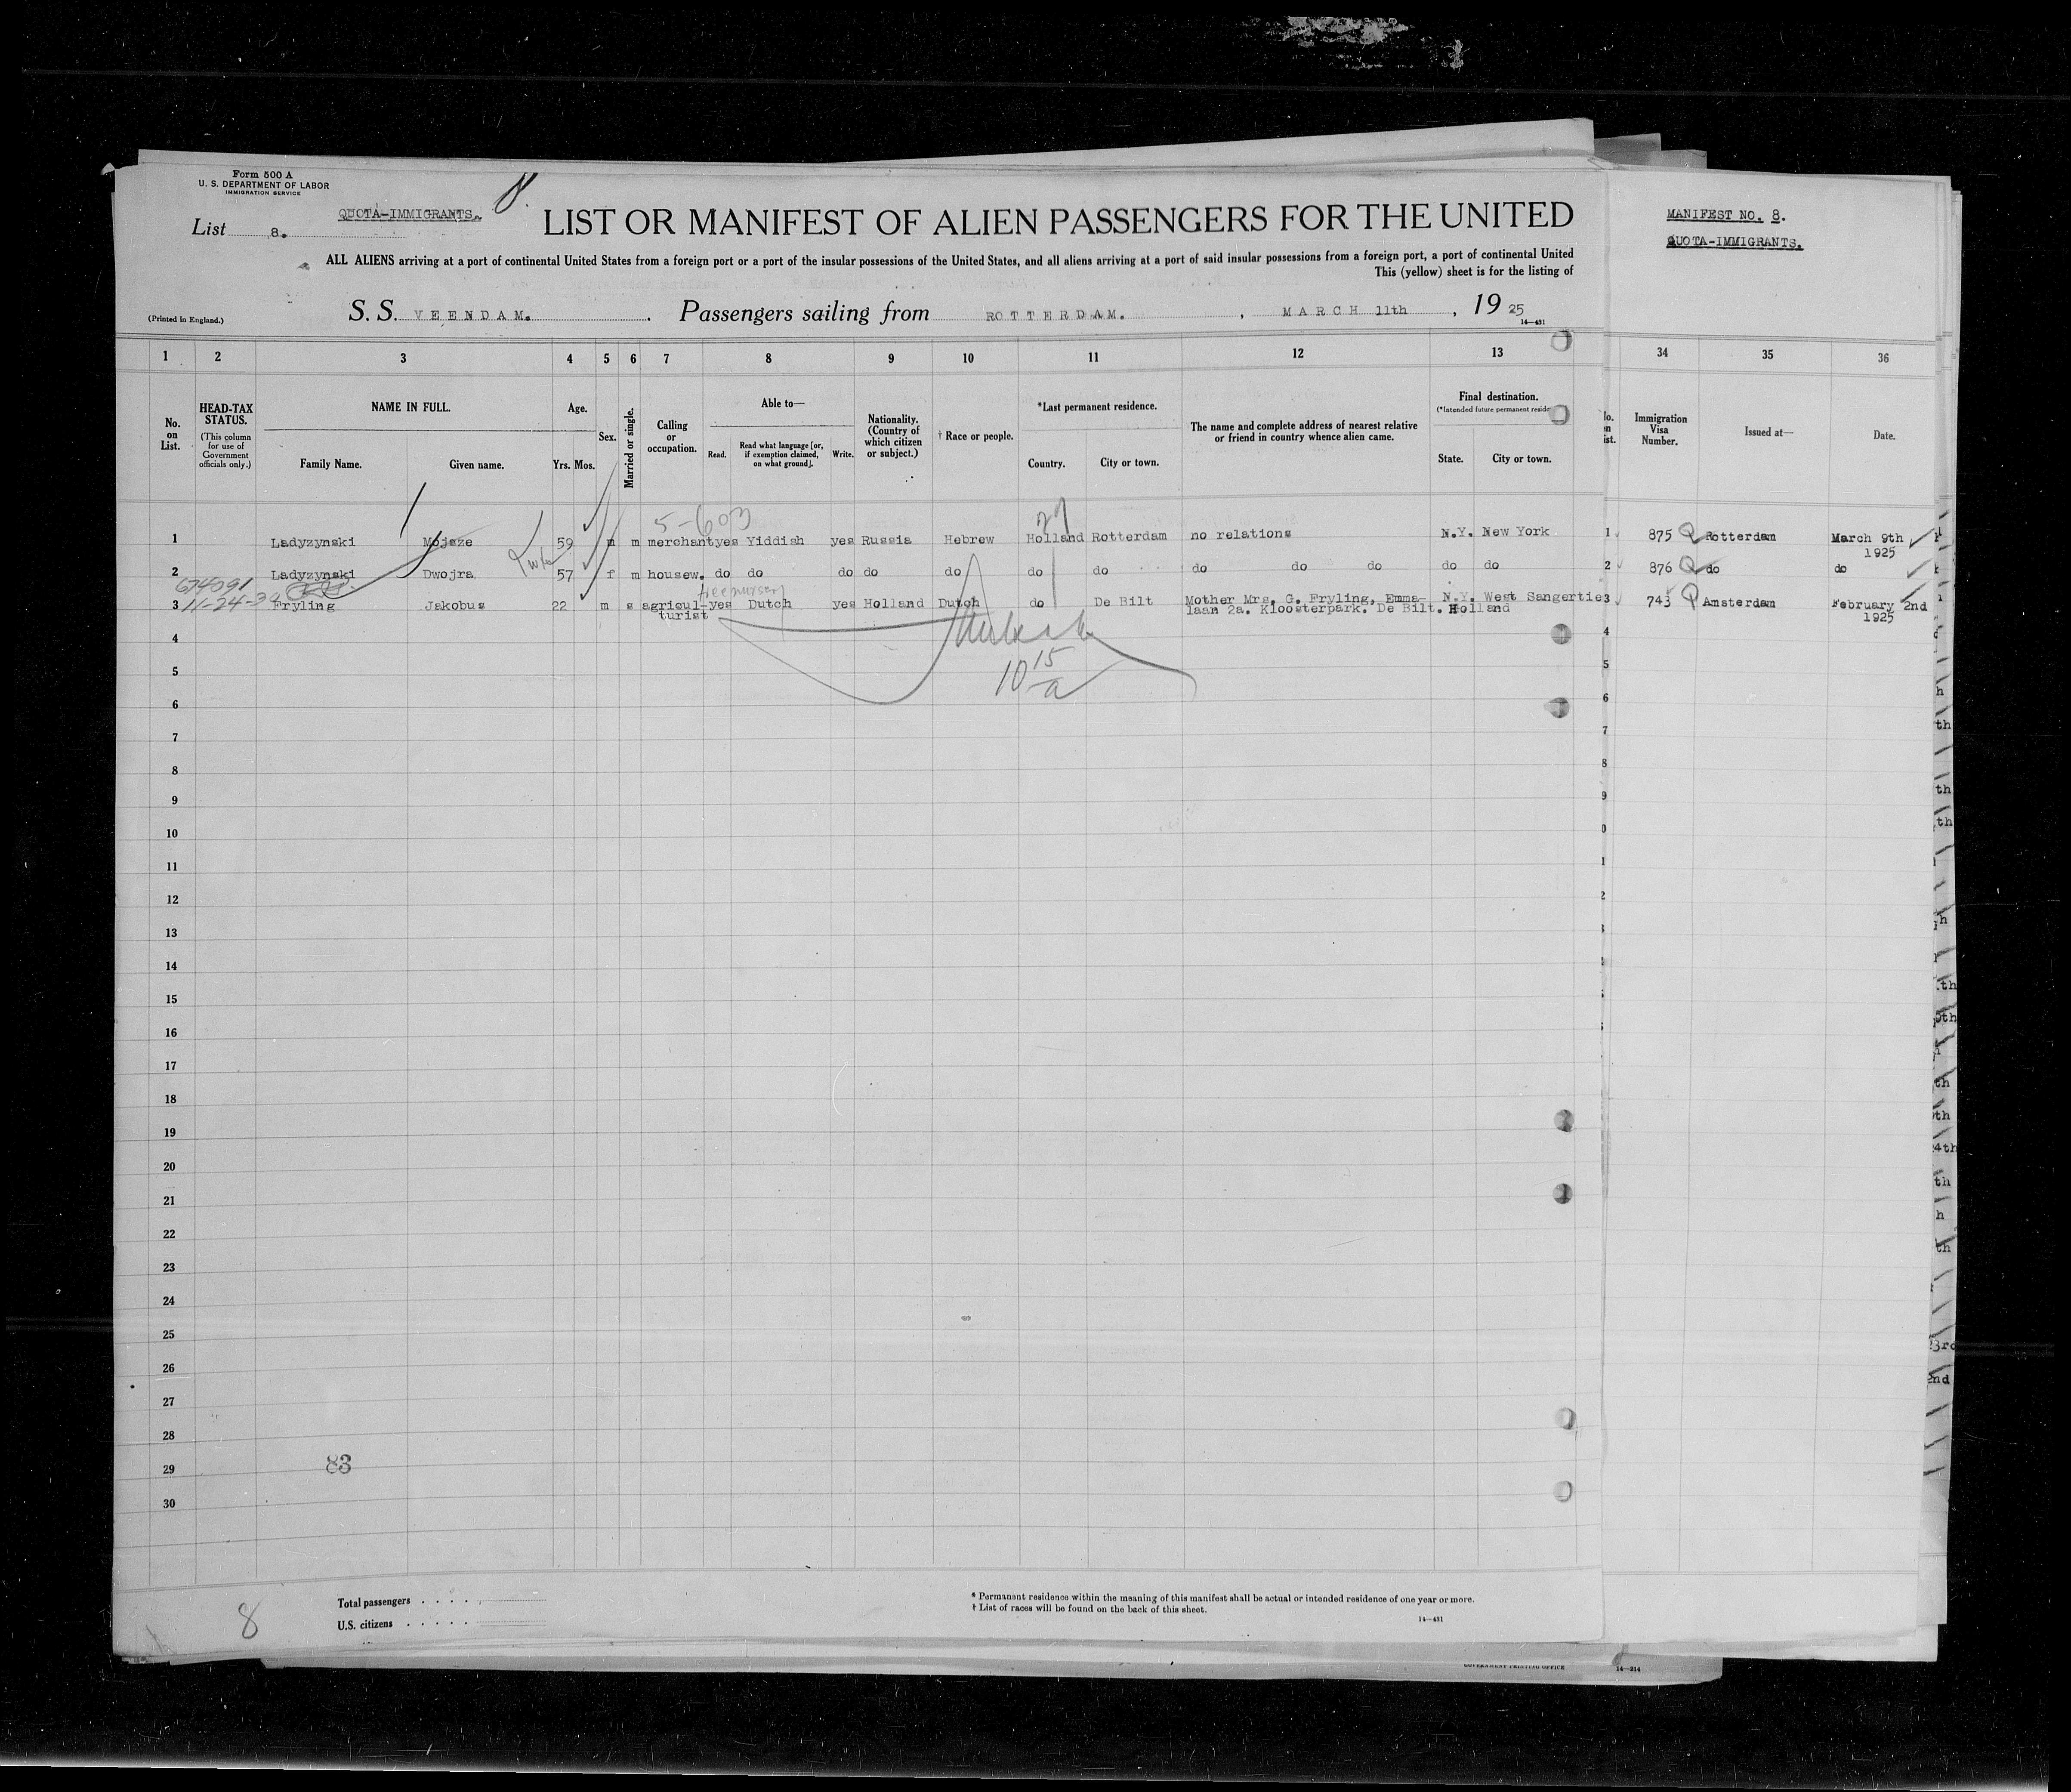 Form 500 A
U. S. DEPARTMENT OF LABOR
IMMIGRATION SERVICE
QUOTA-IMMIGRANTS.
8.
List 8.
LIST OR MANIFEST OF ALIEN PASSENGERS FOR THE UNITED
ALL ALIENS arriving at a port of continental United States from a foreign port or a port of the insular possessions of the United States, and all aliens arriving at a port of said insular possessions from a foreign port, a port of continental United
This (yellow) sheet is for the listing of
(Printed in England.)
S. S. VEENDAM. Passengers sailing from ROTTERDAM. , MARCH 11th , 19 25
14—431
MANIFEST NO. 8.
QUOTA-IMMIGRANTS.
1 2 3 4 5 6 7 8 9 10 11 12 13 34 35 36
No. on List.
HEAD-TAX STATUS.
(This column for use of Government officials only.)
NAME IN FULL.
Family Name. Given name.
Age.
Yrs. Mos.
Sex.
Married or single.
Calling or occupation.
Able to—
Read. Read what language [or, if exemption claimed, on what ground]. Write.
Nationality. (Country of which citizen or subject.)
† Race or people.
*Last permanent residence.
Country. City or town.
The name and complete address of nearest relative or friend in country whence alien came.
Final destination.
(*Intended future permanent reside
State. City or town.
Immigration Visa Number.
Issued at—
Date.
5-603
1 Ladyzynski Mojsze 59 m m merchant yes Yiddish yes Russia Hebrew Holland Rotterdam no relations N.Y. New York 1 875 Q Rotterdam March 9th 1925
2 Ladyzynski Dwojra wife 57 f m housew. do do do do do do do do do do do do 2 876 Q do do
674091
11-24-3
3 Fryling Jakobus 22 m s agricul- yes Dutch yes Holland Dutch do De Bilt Mother Mrs. G. Fryling, Emma- N.Y. West Sangertie 3 743 Q Amsterdam February 2nd
turist laan 2a. Kloosterpark. De Bilt. Holland 1925
4
10 15
a
5
6
7
8
9
10
11
12
13
14
15
16
17
18
19
20
21
22
23
24
25
26
27
28
29
83
30
8
Total passengers . . . .
U.S. citizens . . . . .
* Permanent residence within the meaning of this manifest shall be actual or intended residence of one year or more.
† List of races will be found on the back of this sheet.
14—431
GOVERNMENT PRINTING OFFICE
14—314